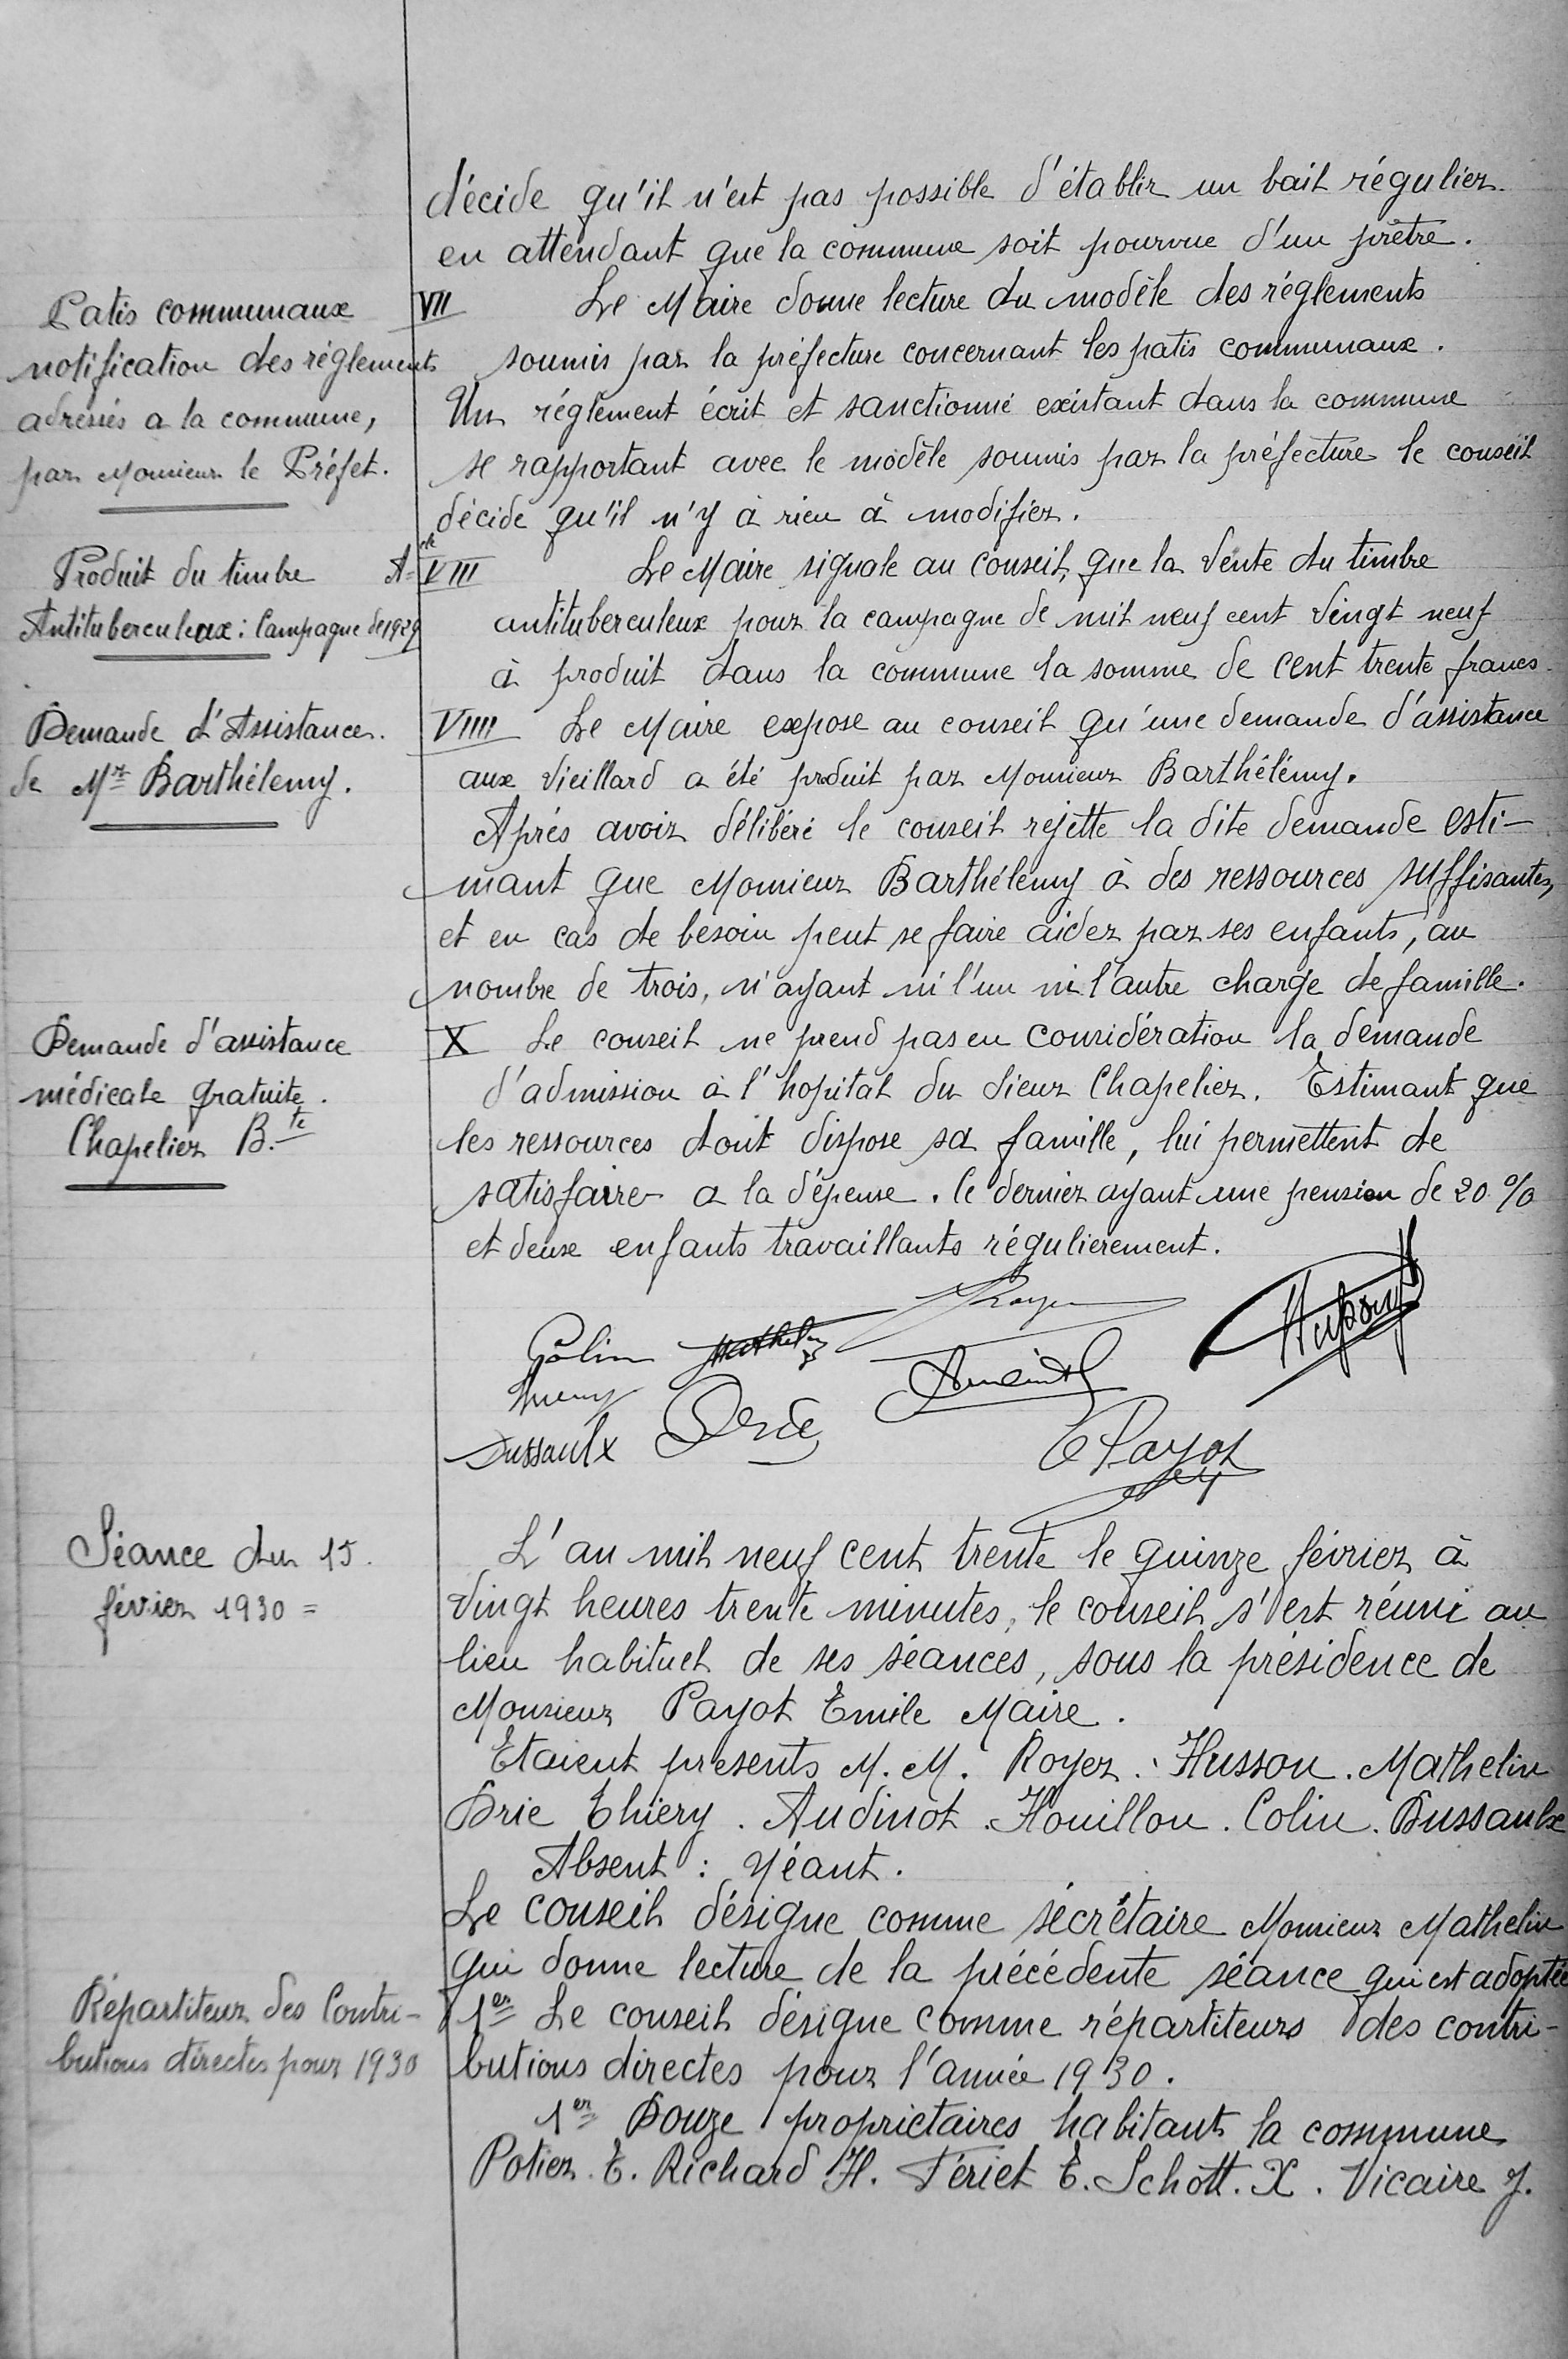 décide qu'il n'est pas possible d'établir un bail régulier
en attendant que la commune soit pourvue d'un prêtre.
Patis communaux
notification des réglements
adressés a la commune,
par Monsieur le Préfet.
VII Le Maire donne lecture du modèle des réglements
soumis par la préfecture concernant les patis communaux.
Un réglement écrit et sanctionné existant dans la commune
se rapportant avec le modèle soumis par la préfecture le conseil
décide qu'il n'y à rien à modifier.
Produit du timbre
Antituberculeux : Campagne de 1929
VIII Le Maire signale au conseil, que la vente du timbre
antituberculeux pour la campagne de mil neuf cent vingt neuf
à produit dans la commune la somme de cent trente francs.
Demande d'Assistance.
de Mr Barthélemy.
VIIII Le Maire expose au conseil qu'une demande d'assistance
aux vieillard a été produit par Monsieur Barthélémy.
Aprés avoir délibéré le conseil rejette la dite demande esti-
mant que Monsieur Barthélémy à des ressources suffisantes,
et en cas de besoin peut se faire aider par ses enfants, au
nombre de trois, n'ayant ni l'un ni l'autre charge de famille.
Demande d'assistance
médicale gratuite.
Chapelier B.te
X Le conseil ne prend pas en considération la demande
d'admission à l'hopital du sieur Chapelier. Estimant que
les ressources dont dispose sa famille, lui permettent de
satisfaire a la dépense. Ce dernier ayant une pension de 20 %
et deux enfants travaillants régulierement.
Royer
Husson
Colin Mathelin
Thiery
Audinot
Dussaulx Drie
E Payot
Séance du 15.
février 1930 =
L'an mil neuf cent trente le quinze février à
vingt heures trente minutes, le conseil s'est réuni au
lieu habituel de ses séances, sous la présidence de
Monsieur Payot Emile Maire.
Etaient présents M. M. Royer. Husson. Mathelin
Drie Thiery. Audinot. Houillon. Colin. Dussaulx
Absent : Néant.
Le conseil désigne comme sécrétaire Monsieur Mathelin
qui donne lecture de la précédente séance qui est adoptée
Répartiteur des Contri-
butions directes pour 1930
1er Le conseil désigne comme répartiteurs des contri-
butions directes pour l'année 1930.
1er Douze propriétaires habitant la commune
Potier. E. Richard H. Fériet E. Schott. X. Vicaire J.